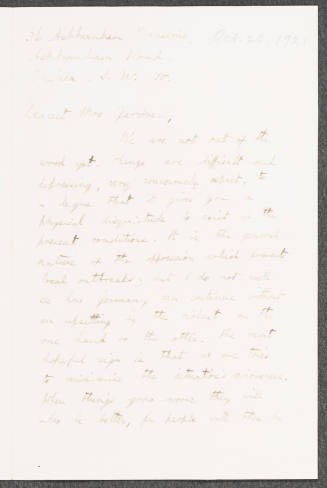 36 Ashburnham Mansions, Oct. 20, 192
Ashburnham Road.
Chelsea. S. W. 10.
Dearest Mrs Gardner,
We are not out of the
wood yet. Things are difficult and
depressing, very
a degree that it gives you a
physical to exist in the
present conditions. It is the
nature of the oppression which prevent
local outbreaks. but I do not well
see how Germany can continue without
an upsetting by the on the
one hand or the other. The most
hopeful sign is that no one tries
to minimise the
When things grow worse they will
also be better, for people will then be